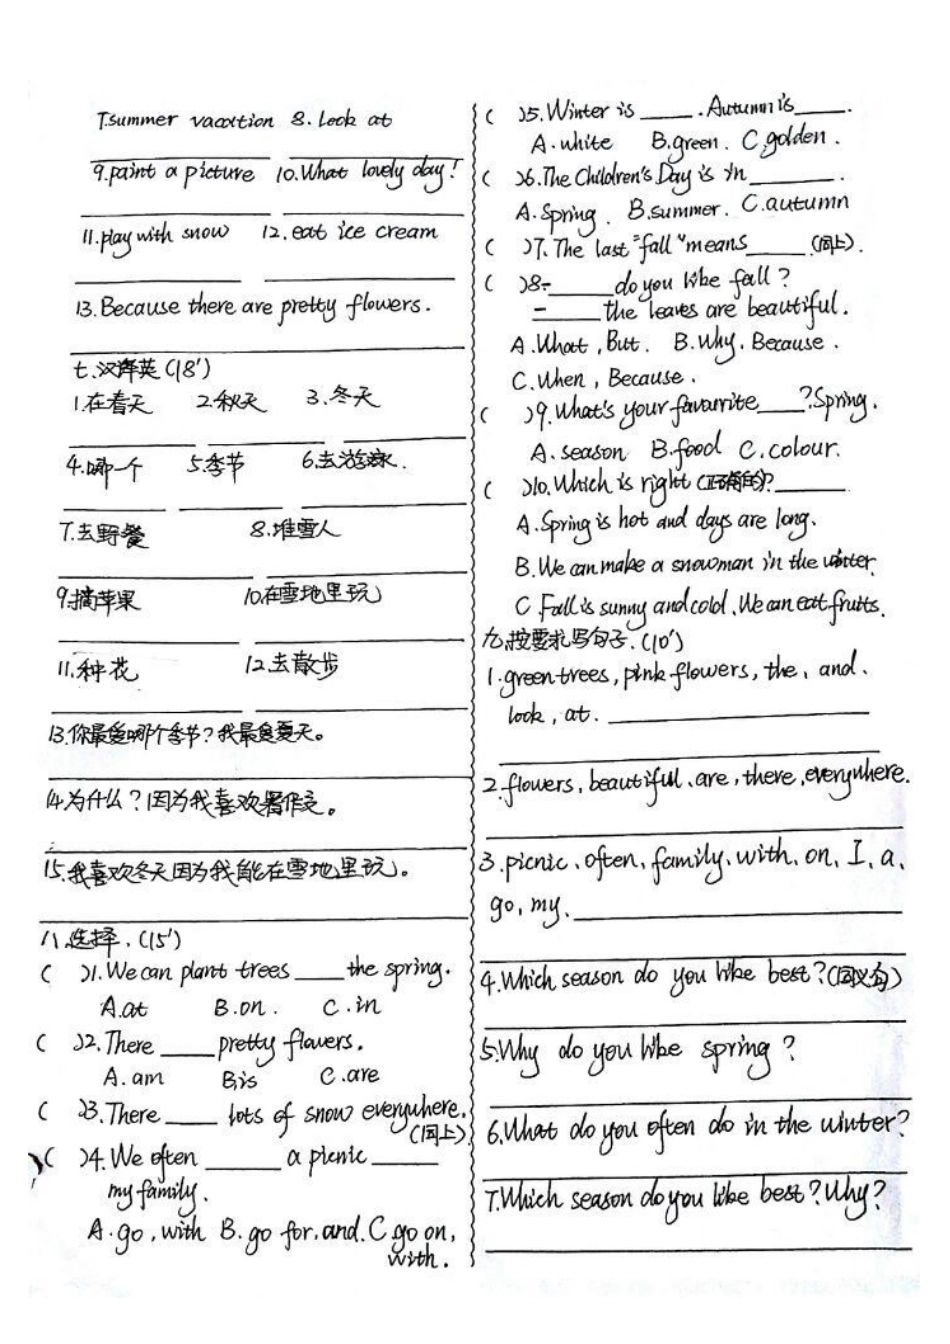 7.summer vacation 8. Look at
9.paint a picture 10.What lovely day!
11.play with snow 12.eat ice cream
13.Because there are pretty flowers.
七.汉译英(18')
1.在春天 2.秋天 3.冬天
4.哪一个 5.季节 6.去游泳.
7.去野餐 8.堆雪人
9.摘苹果 10.在雪地里玩
11.种花 12.去散步
13.你最爱哪个季节?我最爱夏天。
14.为什么?因为我喜欢暑假。
15.我喜欢冬天因为我能在雪地里玩。
八.选择.(15')
( )1.We can plant trees ____ the spring.
A.at B.on. C.in
( )2.There ____ pretty flowers.
A.am B.is C.are
( )3.There ____ lots of snow everywhere.
(同上)
( )4.We often ____ a picnic ____
my family.
A.go,with B.go for,and. C.go on,
with.
( )5.Winter is ____.Autumn is ____.
A.white B.green. C.golden.
( )6.The Children's Day is in ____.
A.Spring. B.summer. C.autumn
( )7.The last "fall" means ____ (同上).
( )8.- ____ do you like fall?
- ____ the leaves are beautiful.
A.What,But. B.Why,Because.
C.When,Because.
( )9.What's your favourite ____?Spring.
A.season B.food C.colour.
( )10.Which is right (正确的)? ____
A.Spring is hot and days are long.
B.We can make a snowman in the winter.
C.Fall is sunny and cold.We can eat fruits.
九.按要求写句子.(10')
1.green trees, pink flowers, the, and.
look, at. ____
2.flowers, beautiful, are, there, everywhere.
3.picnic, often, family, with, on, I, a,
go, my. ____
4.Which season do you like best?(同义句)
5.Why do you like spring?
6.What do you often do in the winter?
7.Which season do you like best?Why?